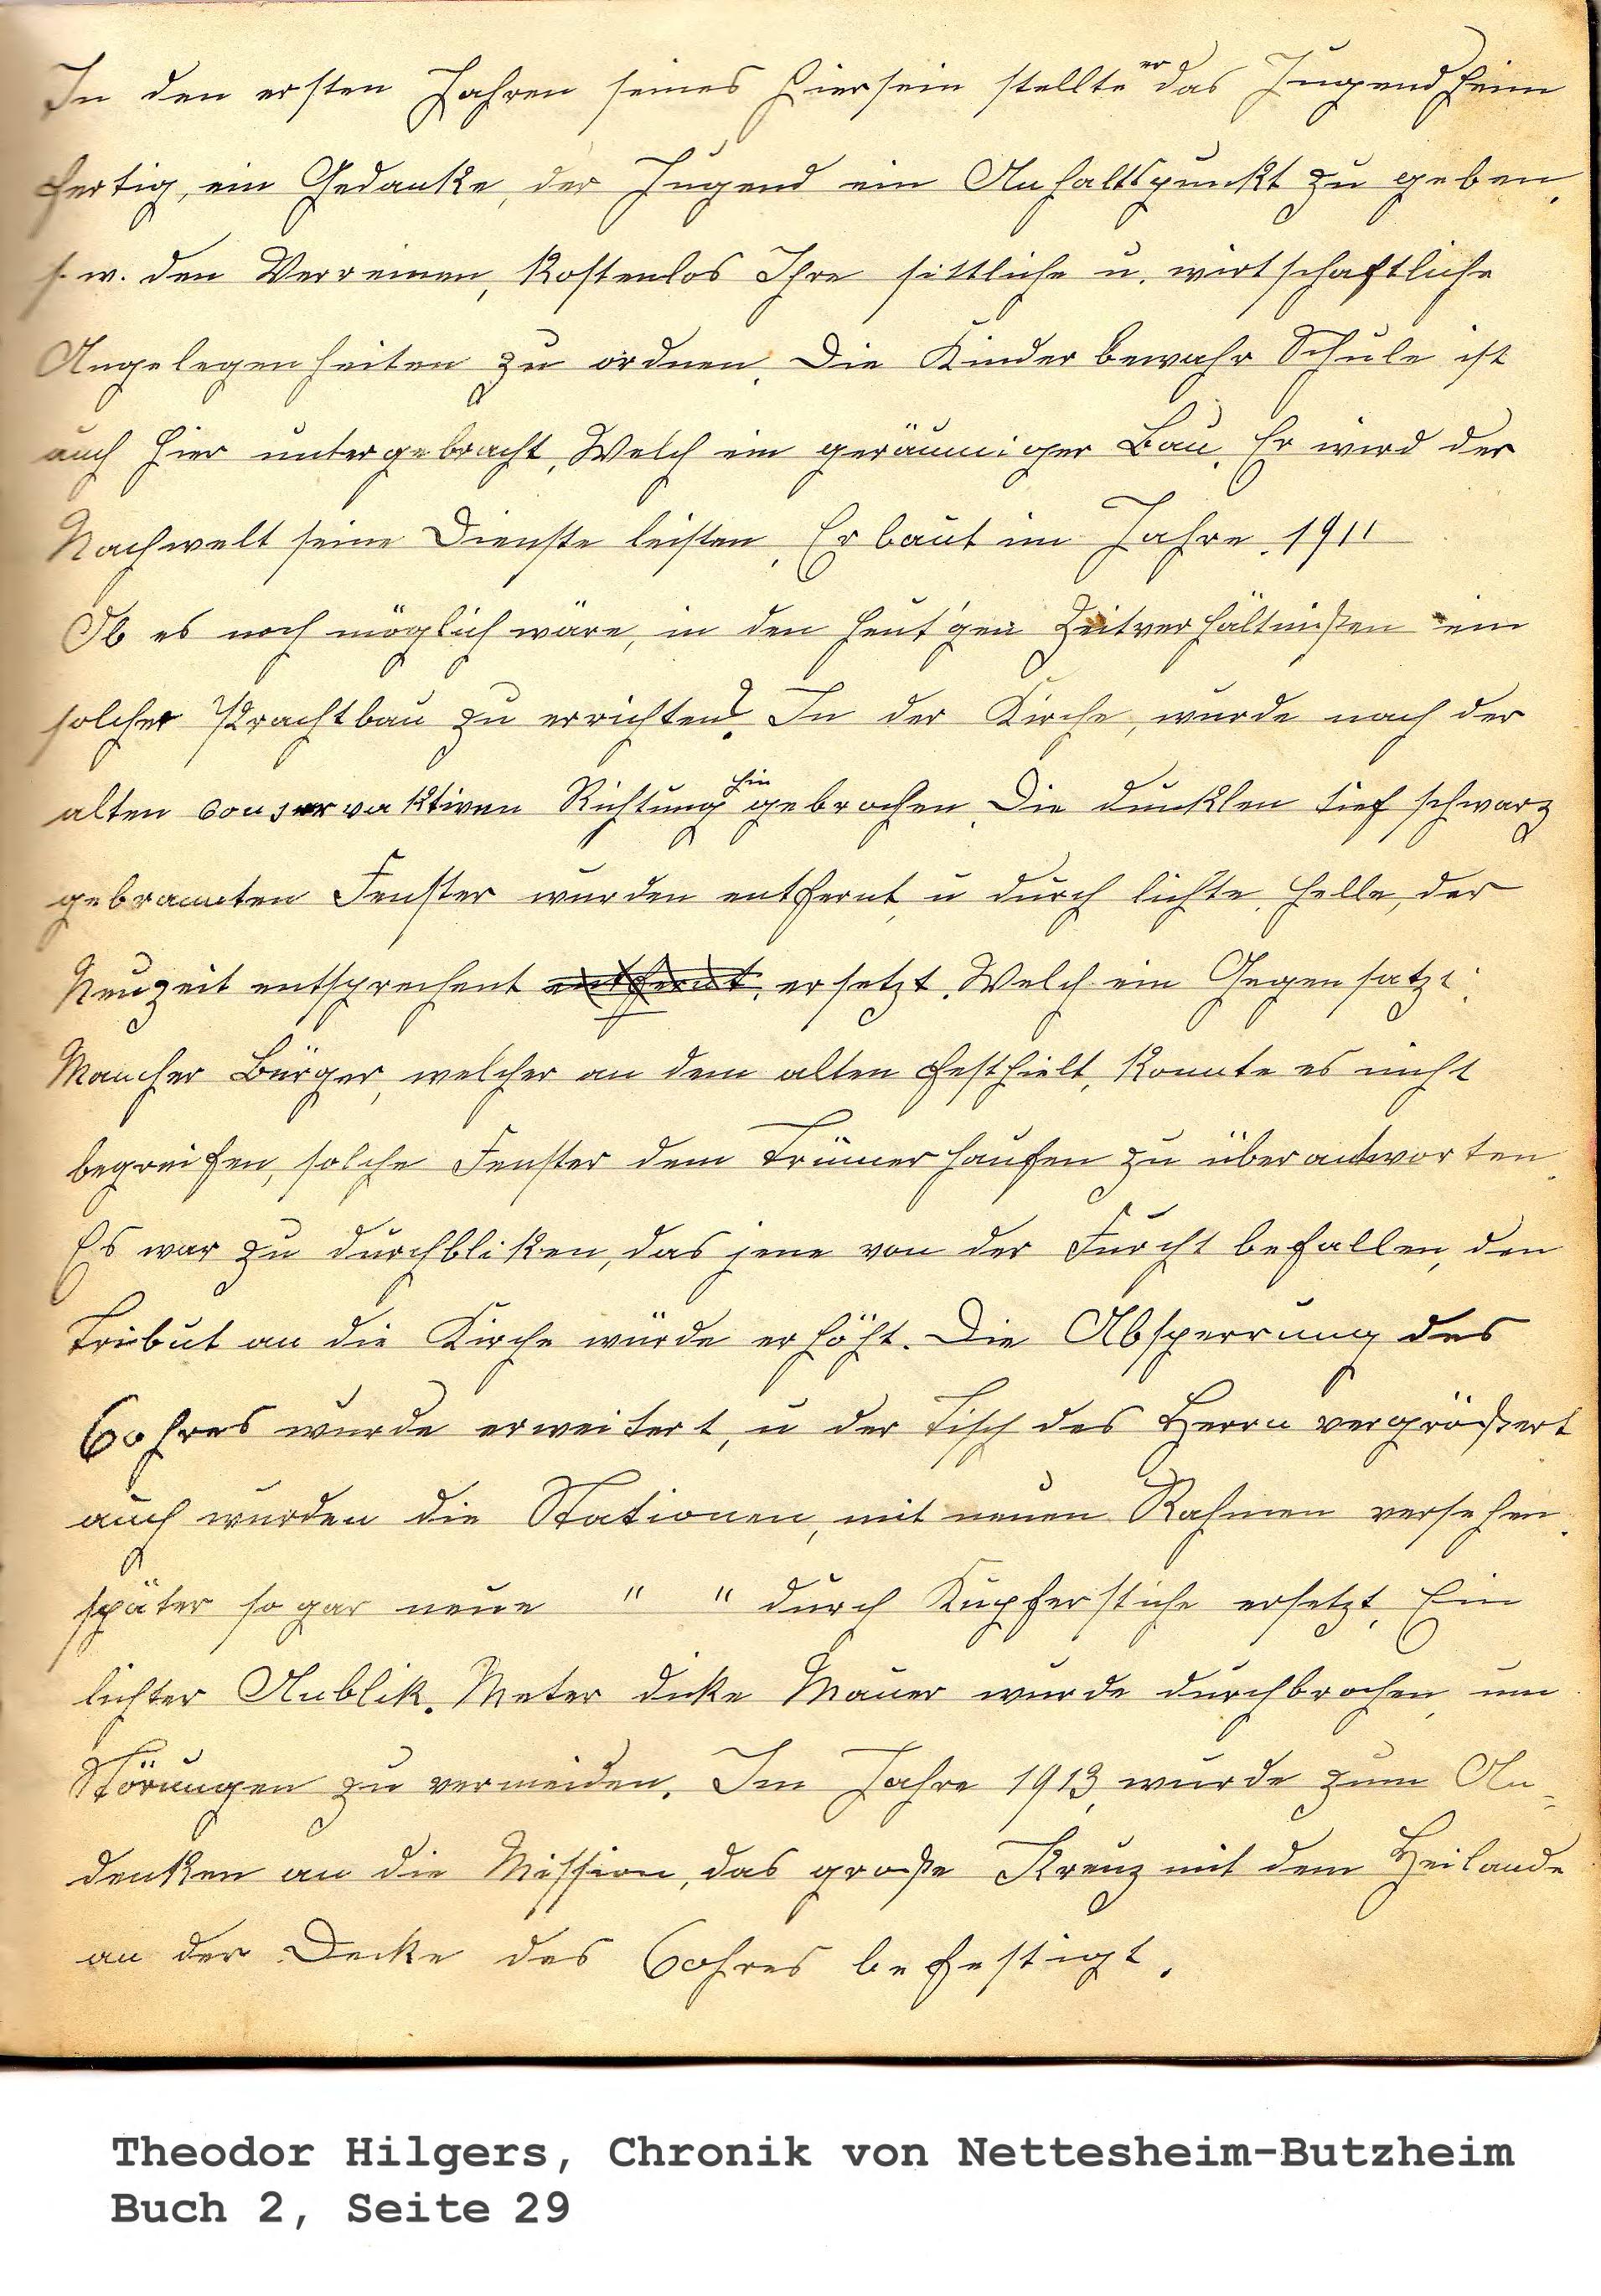 In den ersten Jahren seines Hiersein stellte er das Jugendheim
fertig, ein Gedanke, der Jugend ein Anhaltspunkt zu geben,
s. w. den Verreinen, kostenlos Ihre sittliche u. wirtschaftliche
Angelegenheiten zu ordnen. Die Kinderbewahr Schule ist
auch hier untergebracht, Welch ein geräumiger Bau. Er wird der
Nachwelt seine Dienste leisten, Erbaut im Jahre. 1911
Ob es noch möglich wäre, in den heut'gen Zeitverhältnißen ein
solcher Prachtbau zu errichten? In der Kirche, wurde nach der
alten conservaktiven Richtung hin gebrochen. Die dunklen tief schwarz
gebrannten Fenster wurden entfernt, u durch lichte, helle, der
Neuzeit entsprechent entfernt, ersetzt. Welch ein Gegensatz:
Mancher Bürger, welcher an dem alten festhielt, konnte es nicht
begreifen, solche Fenster dem Trümerhaufen zu überantworten.
Es war zu durchbliken, das jene von der Furcht befallen, den
Tribut an die Kirche würde erhöht. Die Absperrung des
Cohres wurde erweitert, u der Tisch des Herrn vergrößert
auch wurden die Stationen, mit neuen Rahmen versehen.
später sogar neue " " durch Kupferstiche ersetzt, Ein
lichter Anblik. Meter dicke Mauer wurde durchbrochen, um
Störungen zu vermeiden. Im Jahre 1913, wurde zum An=
denken an die Mission, das große Kreuz mit dem Heilande
an der Decke des Cohres befestigt.
Theodor Hilgers, Chronik von Nettesheim-Butzheim
Buch 2, Seite 29